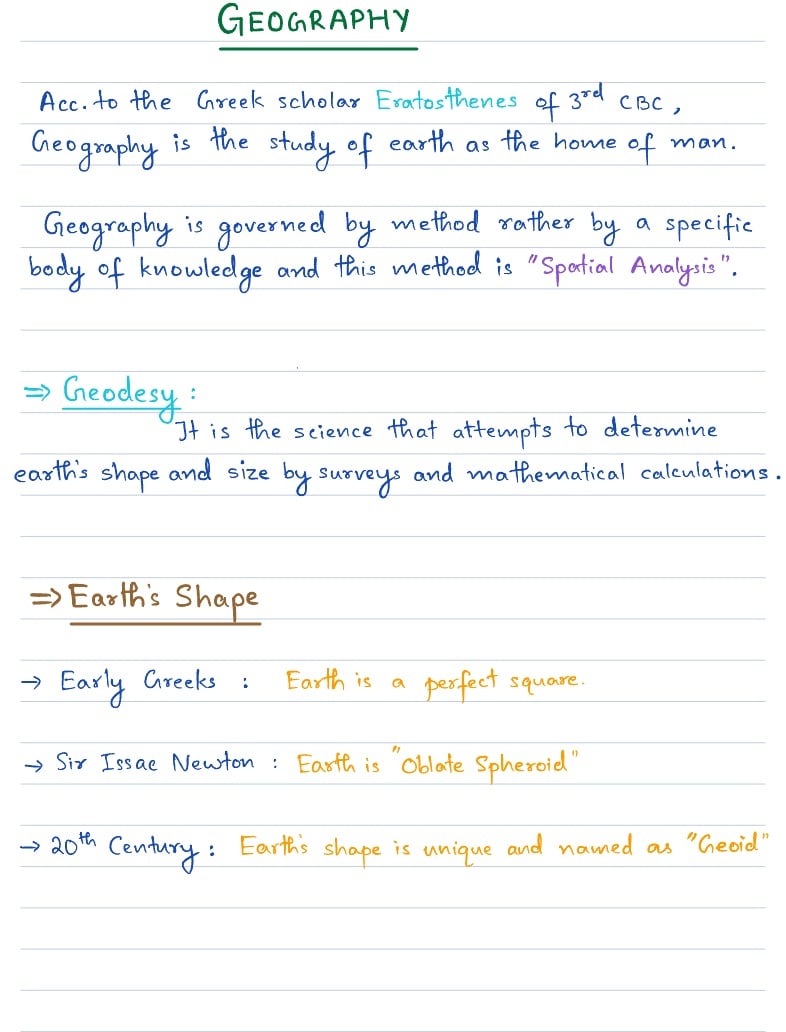 GEOGRAPHY
Acc. to the Greek scholar Eratosthenes of 3rd CBC,
Geography is the study of earth as the home of man.
Geography is governed by method rather by a specific
body of knowledge and this method is "Spatial Analysis".
⇒ Geodesy :
It is the science that attempts to determine
earth's shape and size by surveys and mathematical calculations.
⇒ Earth's Shape
→ Early Greeks : Earth is a perfect square.
→ Sir Issac Newton : Earth is "Oblate Spheroid"
→ 20th Century : Earth's shape is unique and named as "Geoid"